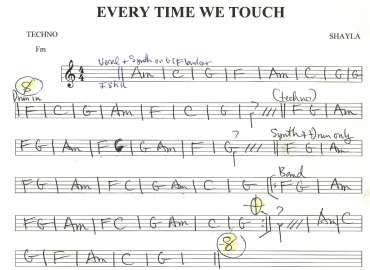 EVERY TIME WE TOUCH
TECHNO SHAYLA
Fm
Vocal + Synth
4/4 Am | C | G | F | Am | C | G | G
Drum in (techno)
| F | C | G | Am | F | C | G | ? /// || F G | Am
Synth + Drum only
FG | Am | F G | G Am | F | G ? /// || F G | Am
Band
FG | Am | F C | G Am | C | G ||: F G | Am
FG | Am | F C | G Am | C | G :|| ? /// | Am | C
G | F | Am | C | G | ||